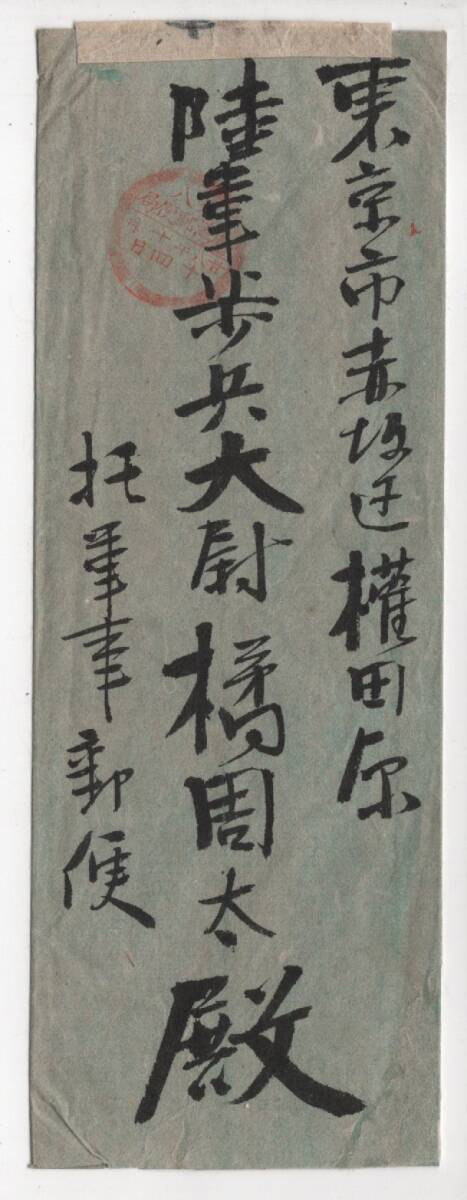 東京市赤坂区權田原
陸軍歩兵大尉橘周太殿
托軍事郵便